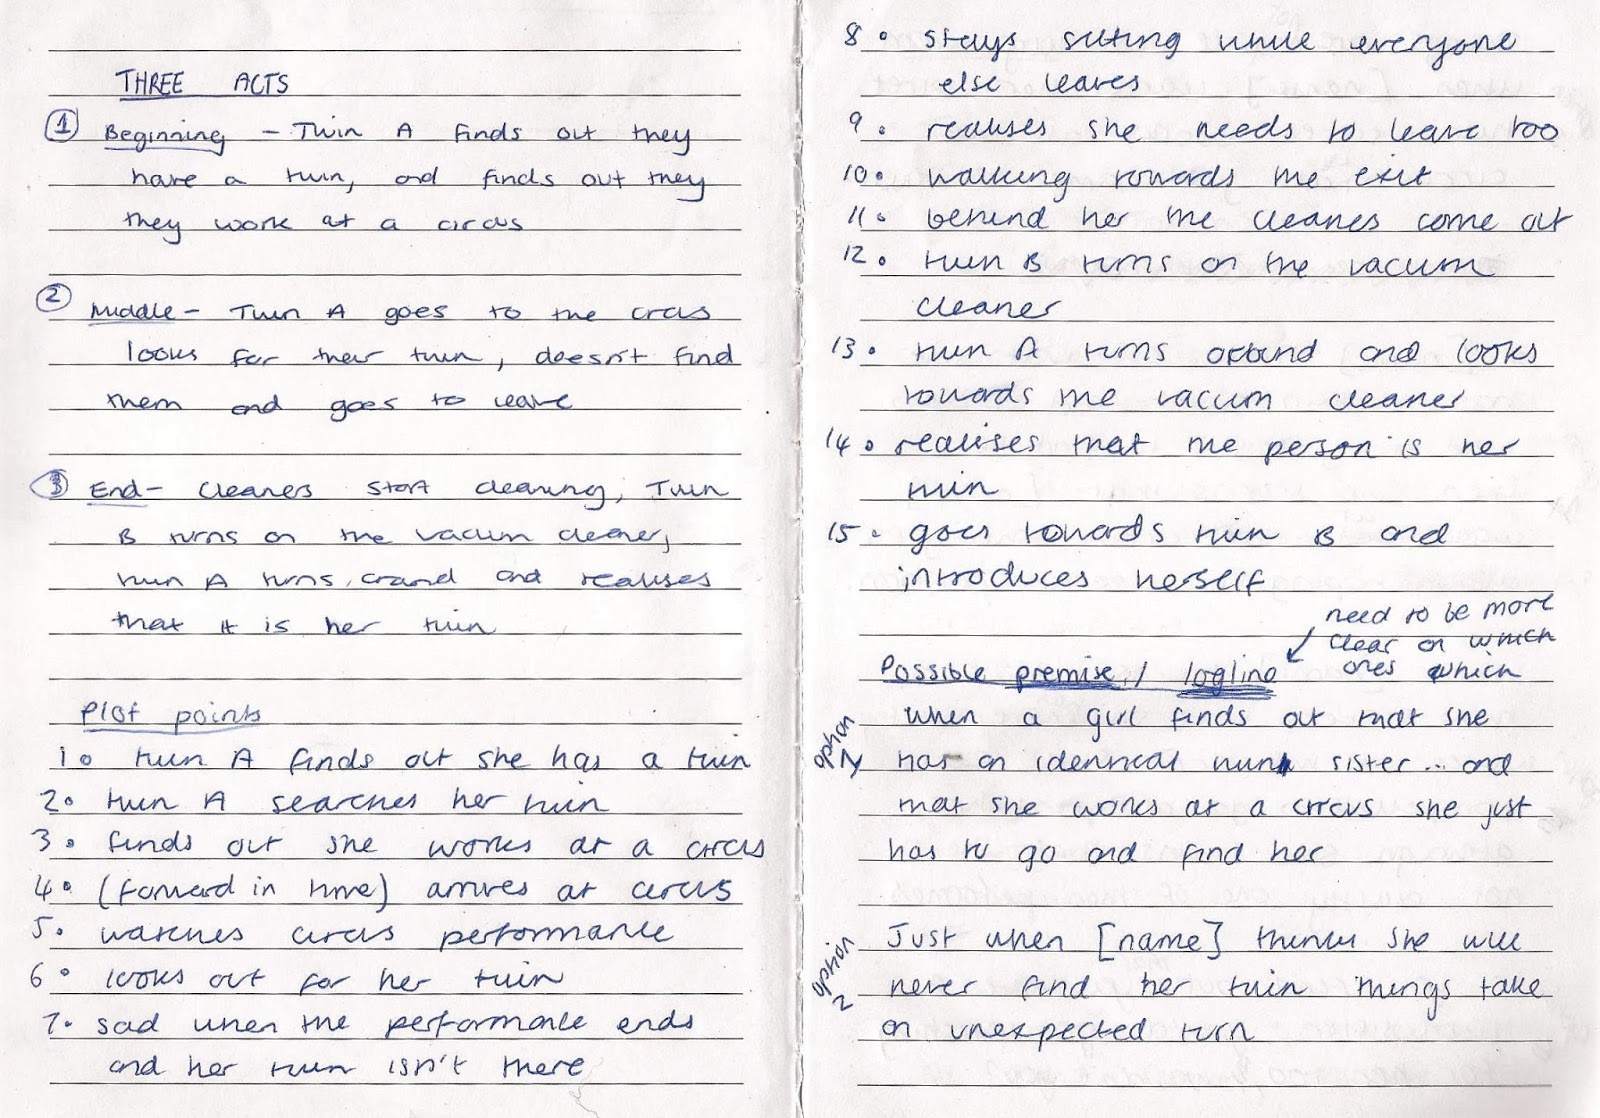 THREE ACTS
① Beginning - Twin A finds out they
have a twin, and finds out they
they work at a circus
② Middle - Twin A goes to the circus
looks for their twin, doesn't find
them and goes to leave
③ End - Cleaners start cleaning, Twin
B turns on the vacum cleaner,
twin A turns around and realises
that it is her twin
Plot points
1. twin A finds out she has a twin
2. twin A searches her twin
3. finds out she works at a circus
4. (forward in time) arrives at circus
5. watches circus performance
6. looks out for her twin
7. sad when the performance ends
and her twin isn't there
8. stays sitting while everyone
else leaves
9. realises she needs to leave too
10. walking towards the exit
11. behind her the cleaners come out
12. twin B turns on the vacum
cleaner
13. twin A turns around and looks
towards the vacum cleaner
14. realises that the person is her
twin
15. goes towards twin B and
introduces herself
need to be more
clear on which
ones which
Possible premise / logline
option
1
when a girl finds out that she
has an identical twin sister... and
that she works at a circus she just
has to go and find her
option
2
Just when [name] thinks she will
never find her twin things take
an unexpected turn